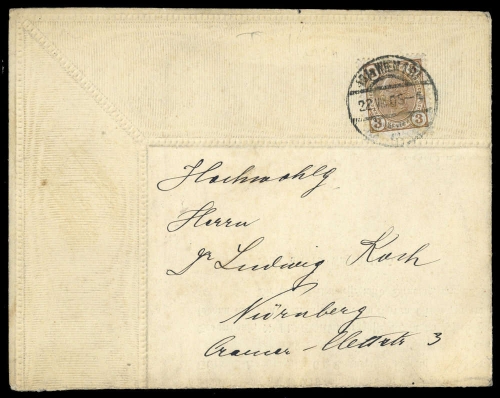 WIEN
3 3
Hochwohlg
Herrn
Dr Ludwig Koch
Nürnberg
Cramer-Klettstr 3